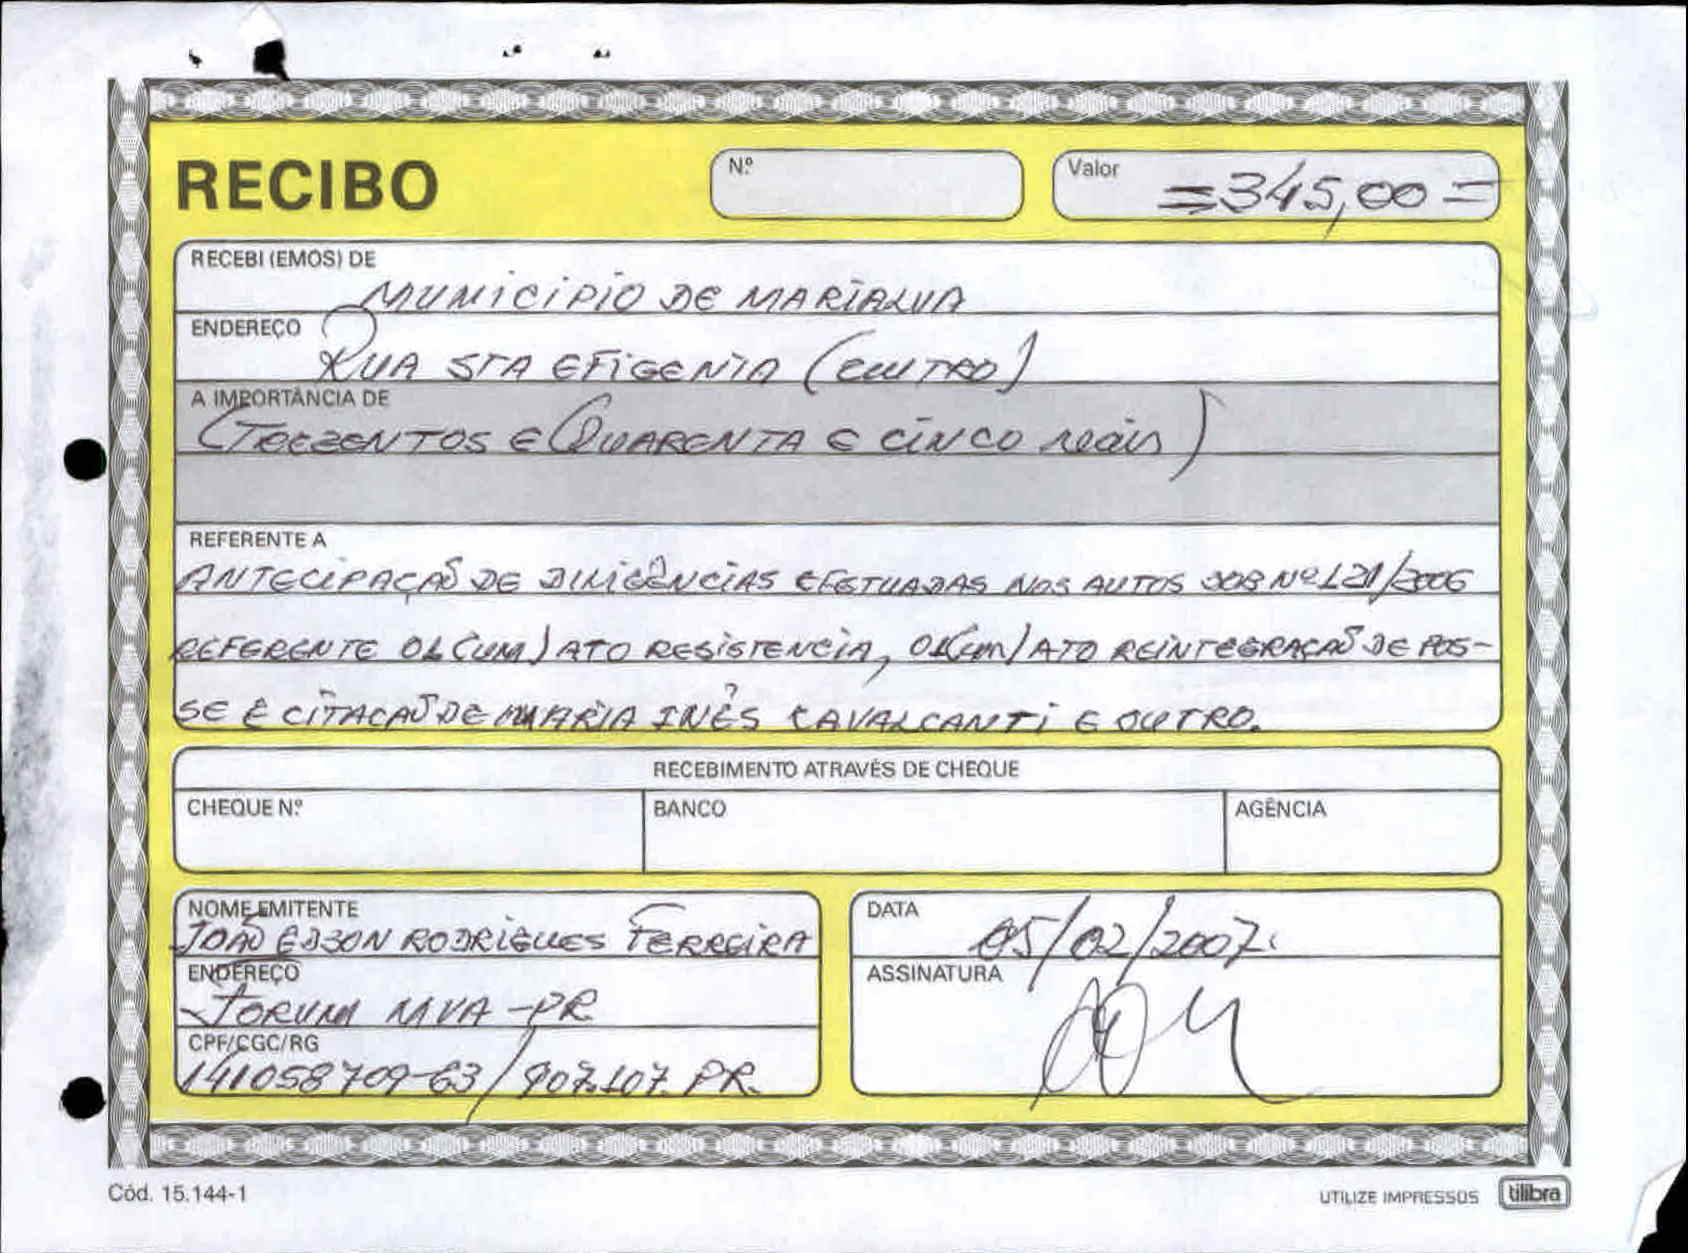 RECIBO
Nº
Valor =345,00=
RECEBI (EMOS) DE
MUNICIPIO DE MARIALVA
ENDEREÇO
RUA STA EFIGENIA (CENTRO)
A IMPORTÂNCIA DE
(TREZENTOS E QUARENTA E CINCO reais)
REFERENTE A
ANTECIPAÇÃO DE DILIGÊNCIAS EFETUADAS NOS AUTOS SOB Nº 121/2006
REFERENTE 01 (UM) ATO RESISTENCIA, 01 (um) ATO REINTEGRAÇÃO DE POS-
SE E CITACAÕ DE MARIA INÊS CAVALCANTI E OUTRO.
RECEBIMENTO ATRAVÉS DE CHEQUE
CHEQUE Nº
BANCO
AGÊNCIA
NOME EMITENTE
JOÃO EDSON RODRIGUES FERREIRA
ENDEREÇO
FORUM MVA - PR
CPF/CGC/RG
141058709-63 / 907.107. PR.
DATA
05/02/2007.
ASSINATURA
Cód. 15.144-1
UTILIZE IMPRESSOS tilibra